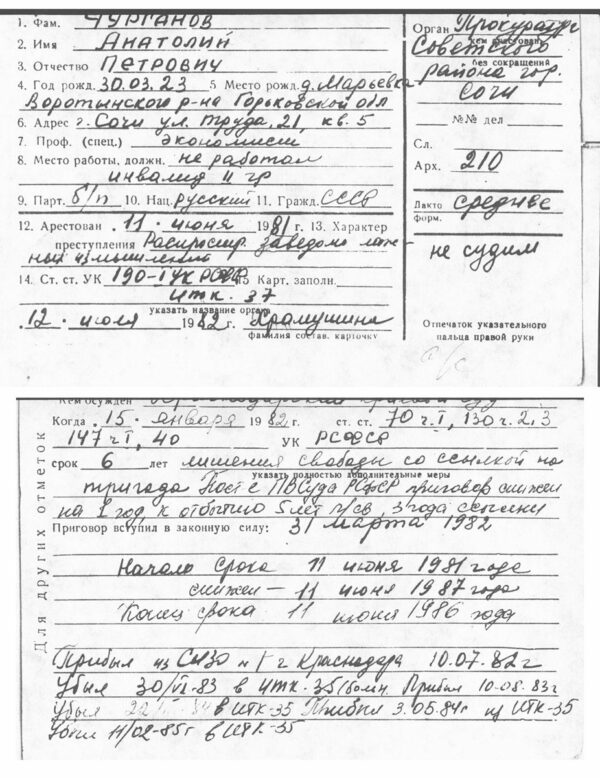 1. Фам. ЧУРГАНОВ
2. Имя АНАТОЛИЙ
3. Отчество ПЕТРОВИЧ
4. Год рожд. 30.03.23 5 Место рожд. д. Марьевка
Воротынского р-на Горьковской обл
6. Адрес г. Сочи ул. Труда, 21, кв. 5
7. Проф. (спец.) экономист
8. Место работы, должн. не работал
инвалид II гр
9. Парт. б/п 10. Нац. русский 11. Гражд. СССР
12. Арестован „11“ июня 1981 г. 13. Характер
преступления Распростр. заведомо лож-
ных измышлений
14. Ст. ст. УК 190-1 УК РСФСР 15 Карт. заполн.
ИТК. 37
указать название органа
„12“ июля 1982 г. Храмушина
фамилия состав. карточку
Орган Прокуратур
Советского
без сокращений
района гор.
Сочи
№№ дел
Сл.
Арх. 210
Дакто форм. среднее
не судим
Отпечаток указательного
пальца правой руки
с/с
Для других отметок
Кем осужден Краснодарский краевой суд
Когда „15“ января 1982 г. ст. ст. 70 ч. I, 130 ч. 2, 3
147 ч I, 40 УК РСФСР
срок 6 лет лишения свободы со ссылкой на
указать полностью дополнительные меры
три года Пост с ПВСуда РСФСР приговор снижен
на 1 год, к отбытию 5 лет л/св, 3 года ссылки
Приговор вступил в законную силу: 31 марта 1982
Начало срока 11 июня 1981 года
снижен — 11 июня 1987 года
Конец срока 11 июня 1986 года
Прибыл из СИЗО № 1 г Краснодара 10.07.82 г
Убыл 30/VI-83 в ИТК-35 Прибыл 10.08.83 г
Убыл в ИТК-35 Прибыл 3.05.84 г из ИТК-35
Убыл 11/02-85 г в ИТК-35